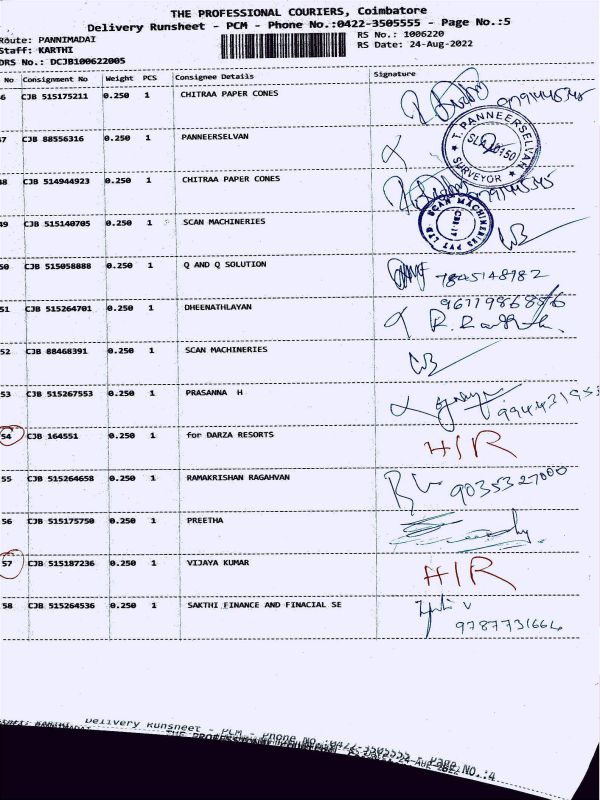 THE PROFESSIONAL COURIERS, Coimbatore
Delivery Runsheet - PCM - Phone No.:0422-3505555 - Page No.:5
Route: PANNIMADAI RS No.: 1006220
Staff: KARTHI RS Date: 24-Aug-2022
DRS No.: DCJB100622005
No Consignment No Weight PCS Consignee Details Signature
6 CJB 515175211 0.250 1 CHITRAA PAPER CONES
47 CJB 88556316 0.250 1 PANNEERSELVAN
T. PANNEERSELVAN
SURVEYOR
48 CJB 514944923 0.250 1 CHITRAA PAPER CONES
49 CJB 515140705 0.250 1 SCAN MACHINERIES
SCAN MACHINERIES PVT LTD
50 CJB 515058888 0.250 1 Q AND Q SOLUTION 7845148982
51 CJB 515264701 0.250 1 DHEENATHLAYAN
52 CJB 88468391 0.250 1 SCAN MACHINERIES
53 CJB 515267553 0.250 1 PRASANNA H
54 CJB 164551 0.250 1 for DARZA RESORTS H/R
55 CJB 515264658 0.250 1 RAMAKRISHAN RAGAHVAN 9035327000
56 CJB 515175750 0.250 1 PREETHA
57 CJB 515187236 0.250 1 VIJAYA KUMAR H/R
58 CJB 515264536 0.250 1 SAKTHI FINANCE AND FINACIAL SE
9787731664
Delivery Runsheet - PCM - Phone No.:0422-3505555 - Page No.:4